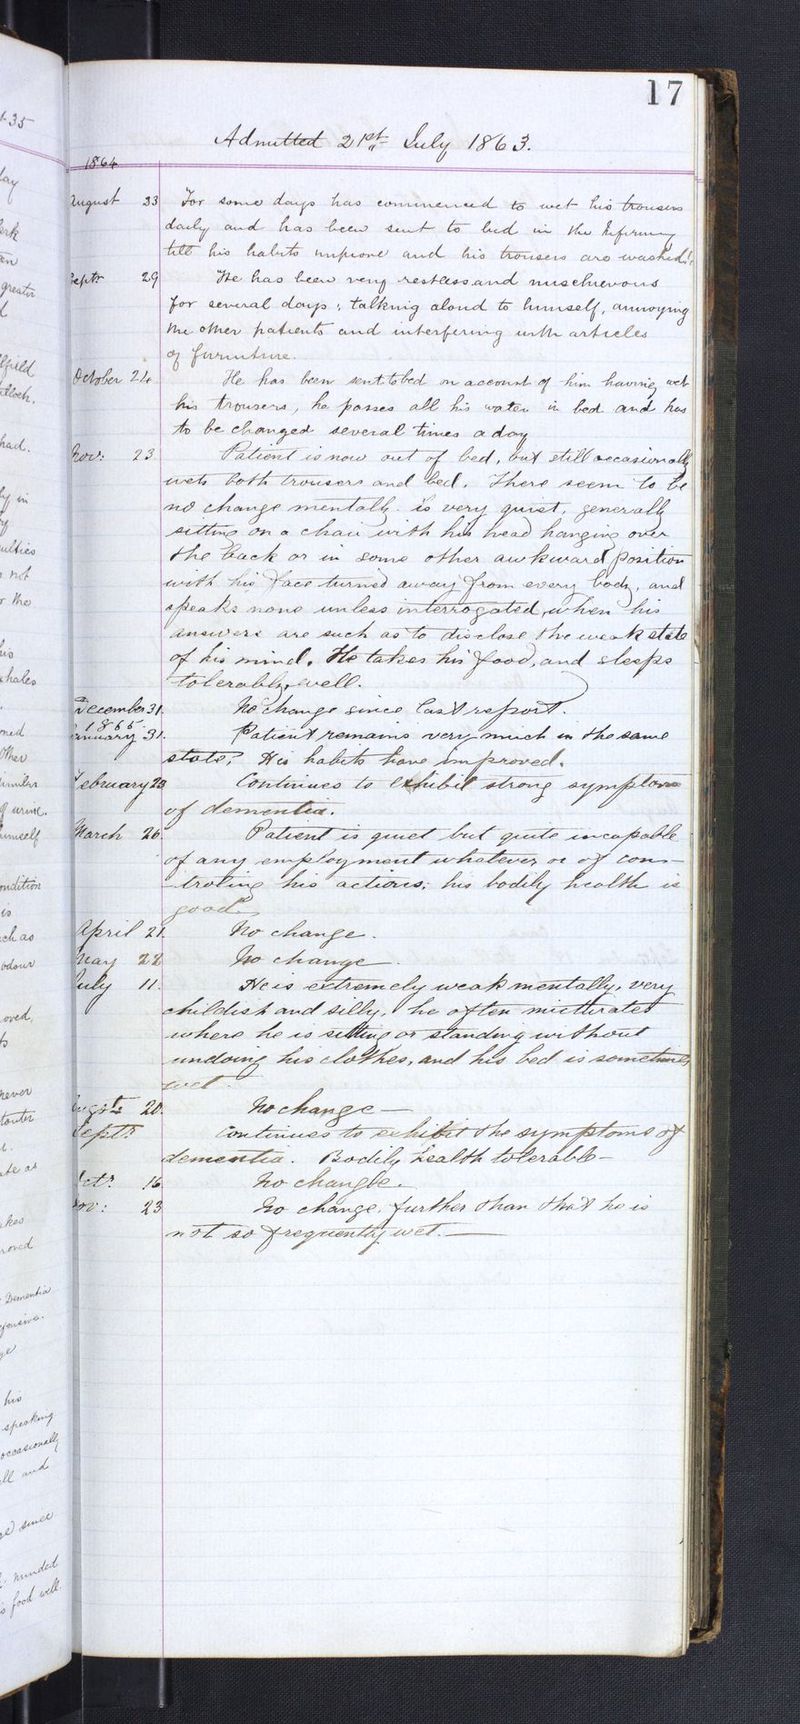 17
Admitted 21st July 1863.
1864
August 23 For some days has commenced to wet his trousers
daily and has been sent to bed in the Infirmary
till his habits improve and his trousers are washed.
Septr 29 He has been very restless and mischievous
for several days; talking aloud to himself, annoying
the other patients and interfering with articles
of furniture.
October 24. He has been sent to bed on account of him having wet
his trousers, he passes all his water in bed and has
to be changed several times a day
Nov: 23 Patient is now out of bed, but still occasionally
wets both trousers and bed. There seem to be
no change mentally. is very quiet, generally
sitting on a chair with his head hanging over
the back or in some other awkward position
with his face turned away from every body, and
speaks none unless interrogated, when his
answers are such as to disclose the weak state
of his mind. He takes his food, and sleeps
tolerably well.
December 31. No change since last report.
1865
January 31. Patient remains very much in the same
state; His habits have improved.
February 23 Continues to exhibit strong symptoms
of dementia.
March 26. Patient is quiet but quite incapable
of any employment whatever or of con-
-troling his actions; his bodily health is
good.
April 21. No change.
May 22 No change.
July 11. He is extremely weak mentally, very
childish and silly, he often micturates
where he is sitting or standing without
undoing his clothes, and his bed is sometimes
wet.
Augst 20. No change —
Septr Continues to exhibit the symptoms of
dementia. Bodily health tolerable —
Octr 16 No changle.
Nov: 23 No change, further than that he is
not so frequently wet. —
135
day
greater
had.
in
not
the
his
other
of urine.
himself
condition
is
such as
odour
never
Dementia
his
speaking
occasionally
and
since
minded
food well.